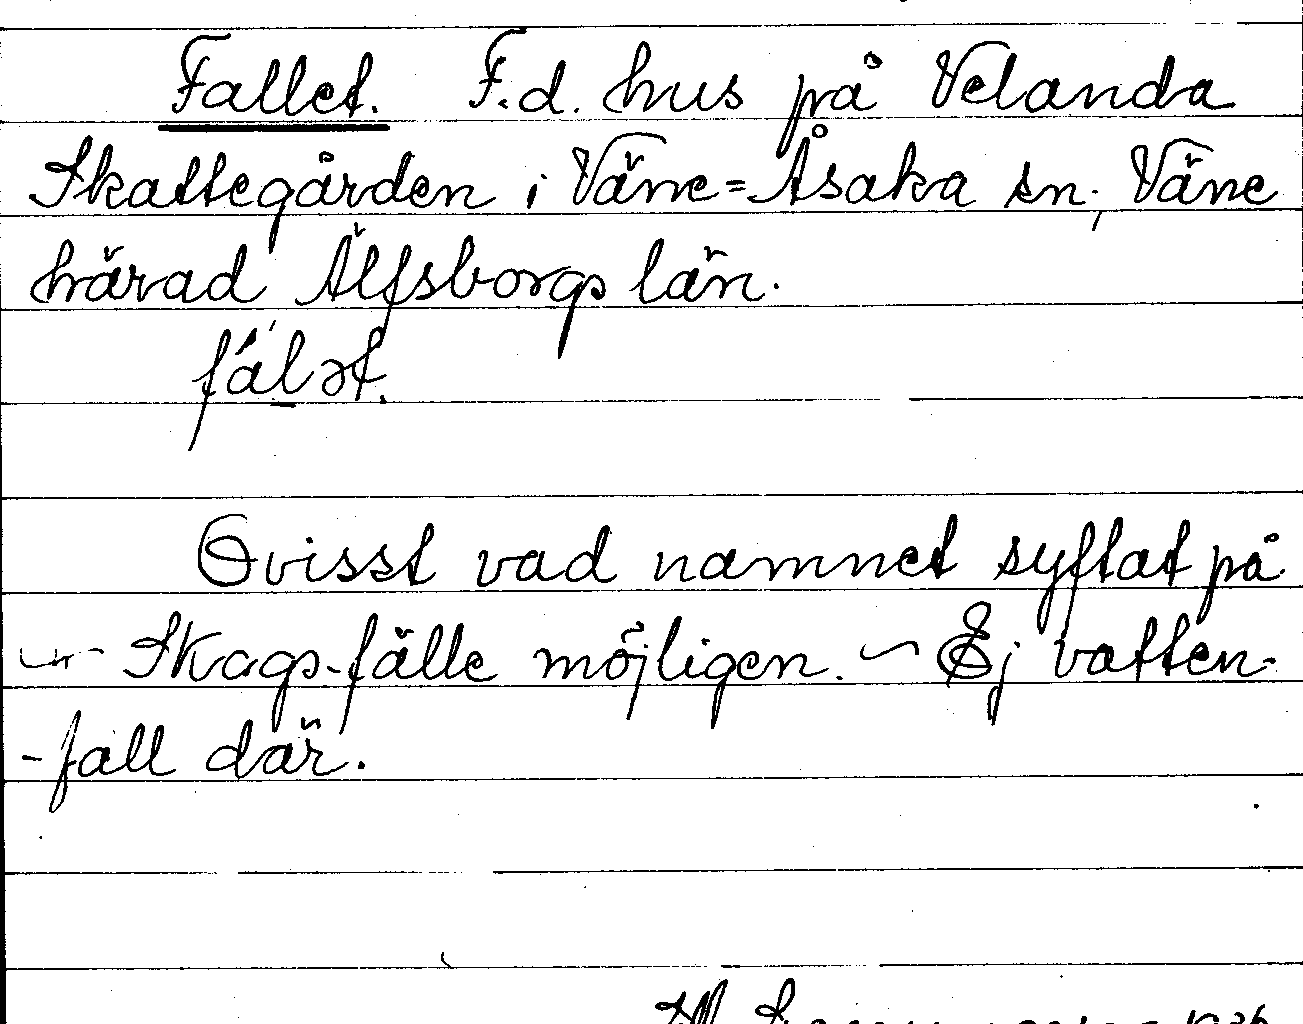 Fallet. F.d. hus på Velanda
Skattegården i Väne=Åsaka sn; Väne
härad Älfsborgs län.
fálət.
Ovisst vad namnet syftat på
– Skogs-fälle möjligen. – Ej vatten-
-fall där.